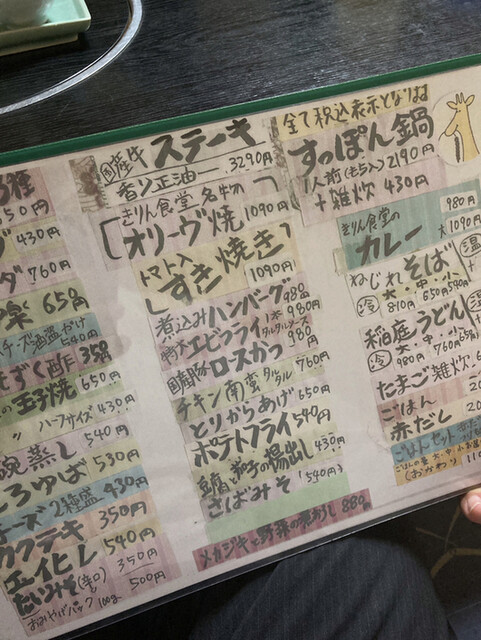 3種
50円
430円
ダ 760円
650円
チーズ酒盗がけ
540円
もずく酢 350円
玉子焼 650円
〃 ハーフサイズ 430円
碗蒸し 540円
ころゆば 530円
チーズ2種盛 430円
カクテキ 350円
エイヒレ 540円
たいみそ(辛口) 350円
おみやげパック 100g 500円
国産牛 ステーキ
香ソ正油 3290円
きりん食堂名物
オリーヴ焼 1090円
トマト入
すき焼き 1090円
煮込みハンバーグ 980円
エビフライ 1本 980円
タルタルソース
国産豚 ロースかつ 980円
チキン南蛮 タルタル 760円
とりからあげ 650円
ポテトフライ 540円
豆腐と の揚出し 430円
さばみそ 540円
メカジキと野菜の煮おろし 880円
全て税込表示となります
すっぽん鍋
1人前 2190円
+雑炊 430円
きりん食堂の
カレー
980円
大 1090円
ねじれそば 温
冷 大・中・小 +
810円 650円 540円
稲庭うどん 温
冷 大・中・小 +
980円 760円 65
たまご雑炊 6
ごはん 20
赤だし 20
ごはんセット
ごはんの量 大・中・小
(おかわり) 110